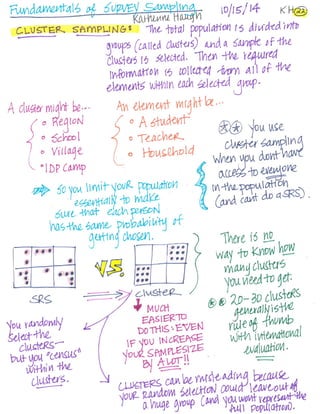 Fundamentals of SURVEY Sampling 10/15/14 KH 22
Katherine Haugh
CLUSTER SAMPLING: The total population is divided into
groups (called clusters) and a sample of the
clusters is selected. Then the required
information is collected from all of the
elements within each selected group.
A cluster might be...
o Region
o School
o Village
*IDP Camp
An element might be...
o A student
o Teacher
o Household
You use
cluster sampling
when you don't have
access to everyone
in the population
(and cant do a SRS).
So you limit your population
essentially to make
sure that each person
has the same probability of
getting chosen.
VS.
SRS
cluster
There is no
way to know how
many clusters
you need to get.
20-30 clusters
generally is the
rule of thumb
with international
evaluation.
You randomly
select the
clusters—
but you "census"
within the
clusters.
MUCH
EASIER TO
DO THIS: EVEN
IF YOU INCREASE
YOUR SAMPLE SIZE
BY A LOT!!
CLUSTERS can be misleading because
your random selection could leave out
a huge group (and you wont represent the
full population).